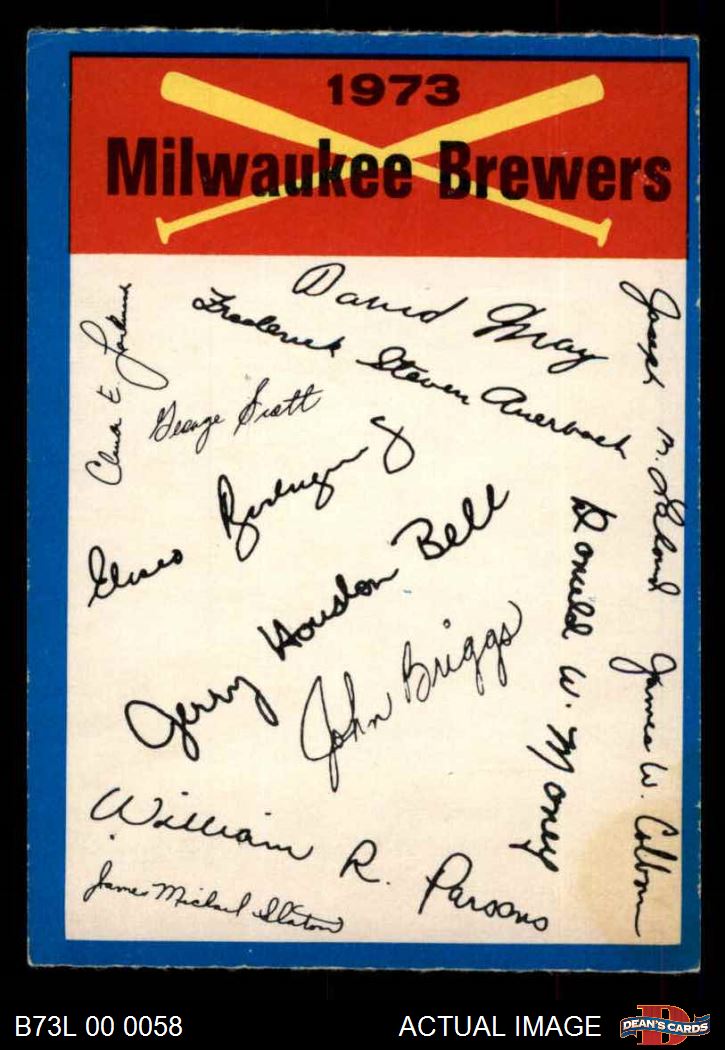 1973
Milwaukee Brewers
David May
Frederick Steven Auerbach
Joseph M. Lahoud
E.
George Scott
Eliseo Rodriguez
Jerry Houston Bell
John Briggs
Donald W. Money
James W. Colborn
William R. Parsons
James Michael Slaton
B73L 00 0058
ACTUAL IMAGE
DEAN'S CARDS